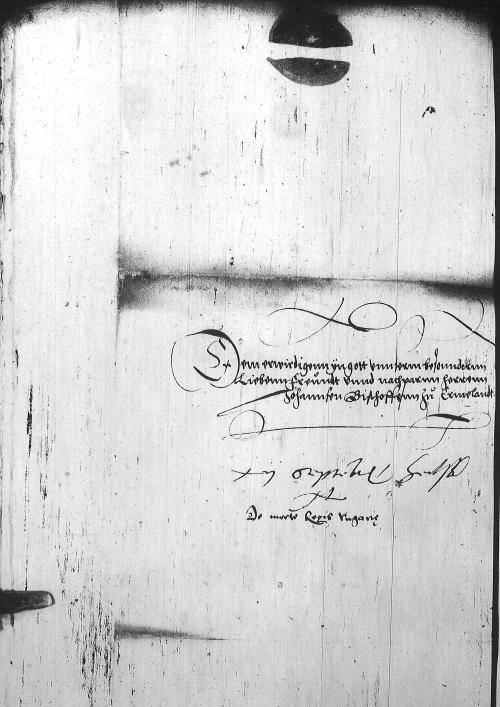 Dem erwirdigenn yn gott vnnserm besonndernn
Liebenn freundt vnnd nachparnn herrenn
Johannsen Bischoffenn zu Ermelandt
De morte Regis Vngarię